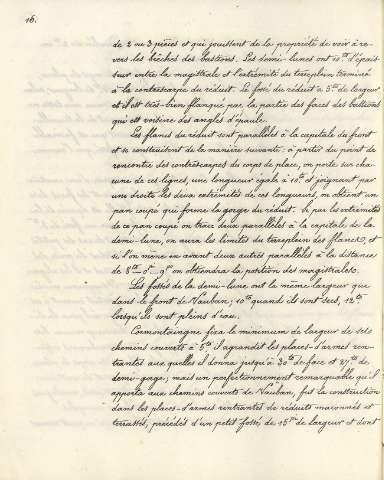 16.
de 2 ou 3 pièces et qui jouissent de la propriété de voir à re-
vers les brèches des bastions. Les demi-lunes ont 10ts d'épais-
seur entre la magistrale et l'extrémité du terreplein terminé
à la contrescarpe du réduit. Le fossé du réduit a 5ts de largeur
et il est très-bien flanqué par la partie des faces des bastions
qui est voisine des angles d'épaule.
Les flancs du réduit sont parallèles à la capitale du front
et se construisent de la manière suivante: à partir du point de
rencontre des contrescarpes du corps de place, on porte sur cha-
cune de ces lignes, une longueur égale à 10ts et joignant par
une droite les deux extrémités de ces longueurs, on obtient un
pan coupé qui forme la gorge du réduit. Si par les extrémités
de ce pan coupé on trace deux parallèles à la capitale de la
demi-lune, on aura les limites du terreplein des flancs, et
si l'on mène en avant deux autres parallèles à la distance
de on obtiendra la position des magistrales.
Les fossés de la demi-lune ont la même largeur que
dans le front de Vauban; 10ts quand ils sont secs, 12ts
lorsqu'ils sont pleins d'eau.
Cormontaingne fixa le minimum de largeur de ses
chemins couverts à 5ts il agrandit les places-d'armes ren-
trantes auxquelles il donna jusqu'à 30ts de face et 27ts de
demi-gorge; mais un perfectionnement remarquable qu'il
apporta aux chemins couverts de Vauban, fut la construction
dans les places-d'armes rentrantes de réduits maçonnés et
terrassés, précédés d'un petit fossé, de 15ds de largeur et dont